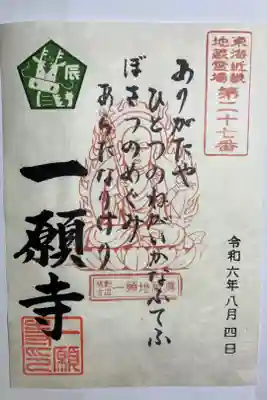 東海近畿
地蔵霊場
第二十七番
辰
ありがたや
ひとつのねがいかなふてふ
ぼさつのめぐみ
あらたなりけり
令和六年八月四日
一願寺